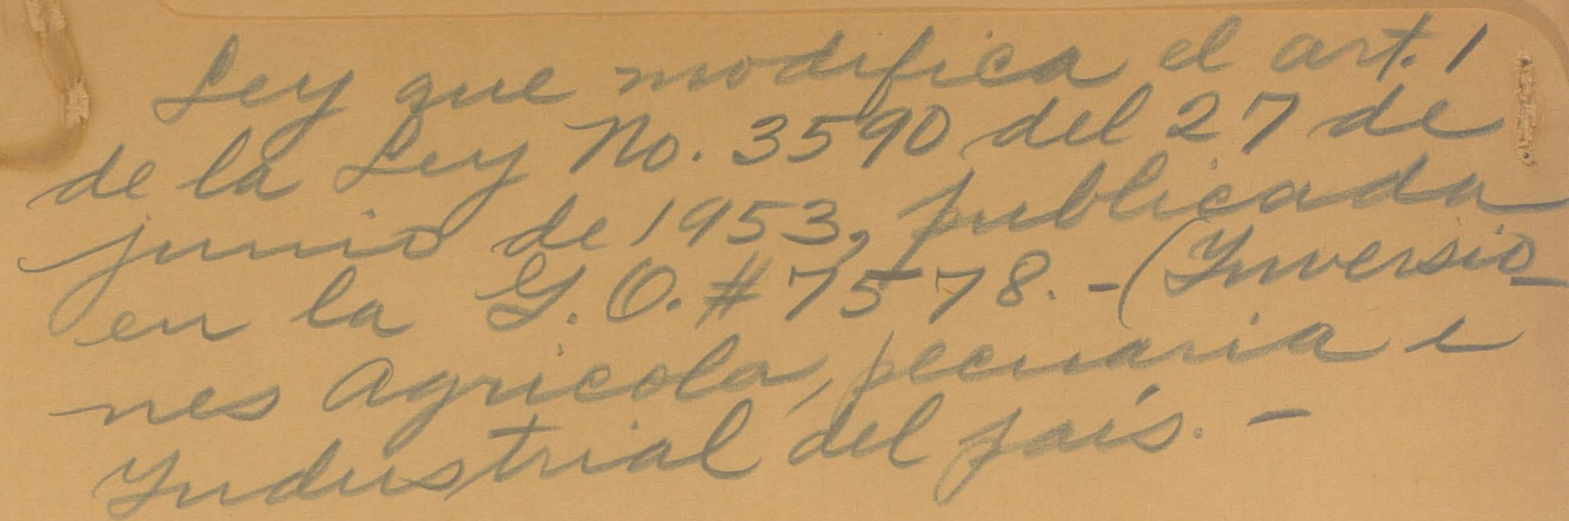 Ley que modifica el art. 1
de la Ley No. 3590 del 27 de
junio de 1953, publicada
en la G. O. # 7578. - (Inversio-
nes Agricola, pecuaria e
Industrial del país. -